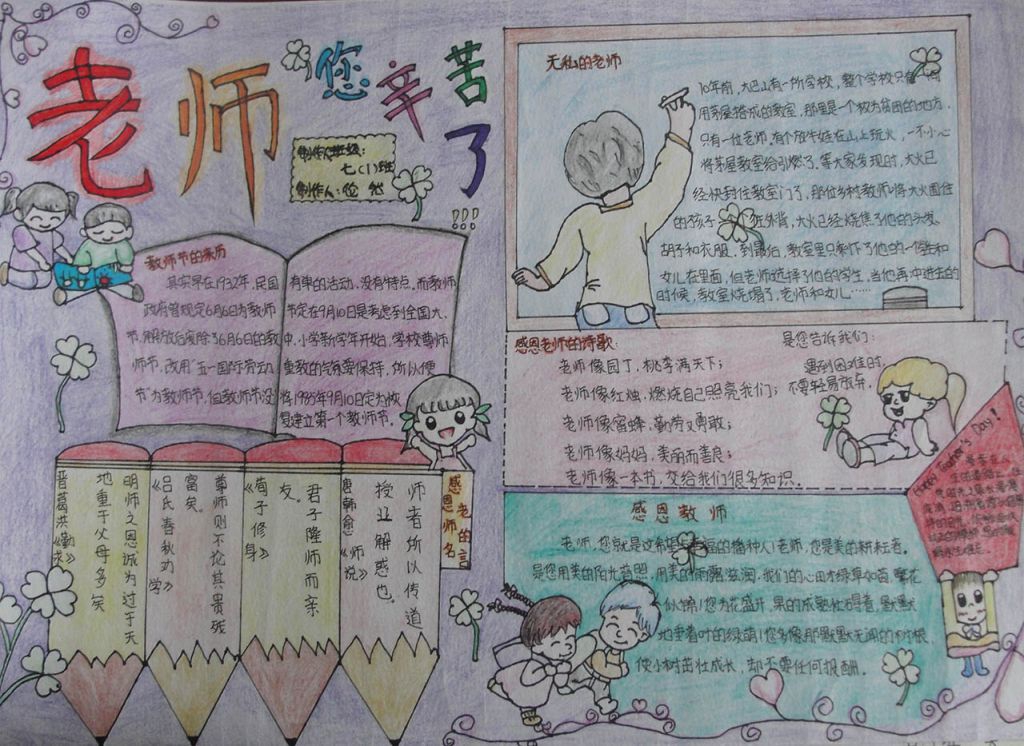 老师您辛苦了!!!
制作人班级:
七(1)班
制作人:
教师节的来历
其实早在1932年,民国
政府曾规定6月6日为教师
节,解放后废除了6月6日的教
师节,改用"五一国际劳动
节"为教师节,但教师节没
有单的活动,没有特点.而教师
节定在9月10日是考虑到全国大、
中、小学新学年开始,学校尊师
重教的气氛要保持,所以便
将1985年9月10日定为恢
复建立第一个教师节。
感恩老师的名言
师者所以传道
授业解惑也。
唐韩愈《师说》
君子隆师而亲
友。
《荀子修身》
尊师则不论其贵残
富矣。
《吕氏春秋劝学》
明师之恩诚为过于天
地重于父母多矣
晋葛洪《勤求》
无私的老师
10年前,大巴山有一所学校,整个学校只有一间
用茅屋搭成的教室,那里是一个极为贫困的地方,
只有一位老师,有个放牛娃在山上玩火,一不小心
将茅屋教室给引燃了,等大家发现时,大火已
经快封住教室门了,那位乡村教师将大火围住
的孩子一个往外背,大火已经烧焦了他的头发、
胡子和衣服,到最后,教室里只剩下了他的一个学生和
女儿在里面,但老师选择了他的学生,当他再冲进去的
时候,教室烧塌了,老师和女儿……
感恩老师的诗歌
老师像园丁,桃李满天下;
老师像红烛,燃烧自己照亮我们;
老师像蜜蜂,勤劳又勇敢;
老师像妈妈,美丽而善良;
老师像一本书,交给我们很多知识。
是您告诉我们:
遇到困难时,
不要轻易放弃。
Happy Teacher's Day!
感恩教师
老师,您就是这希望 福的播种人!老师,您是美的耕耘者。
是您用美的阳光普照,用美的雨露滋润,我们的心田才绿草如茵,繁花
似锦!您为花盛开,果的成熟忙碌着,默默
地垂着叶的绿荫!您多像那默默无闻的树根,
使小树茁壮成长,却不要任何报酬。